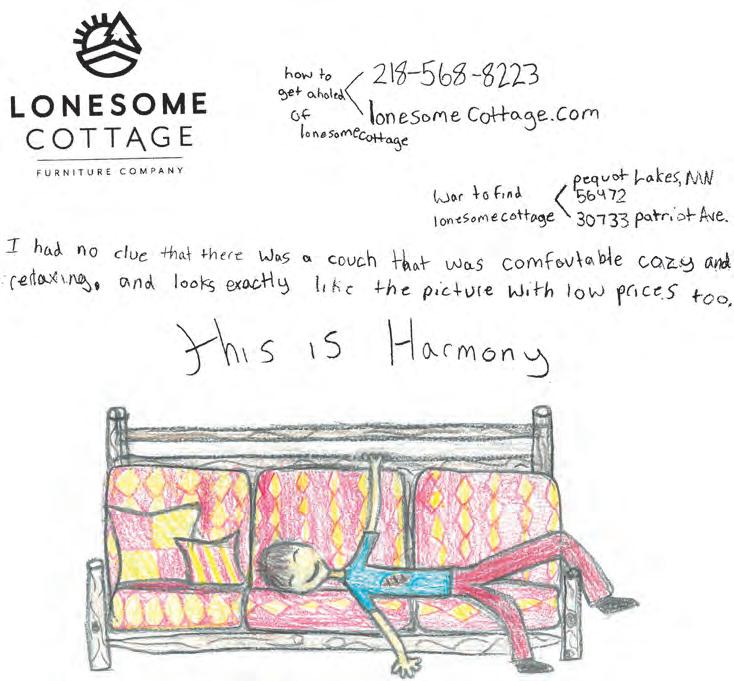 LONESOME
COTTAGE
FURNITURE COMPANY
how to
get aholed
of
lonesomecottage
218-568-8223
lonesome Cottage.com
War to find
lonesomecottage
pequot Lakes, MN
56472
30733 patriot Ave.
I had no clue that there was a couch that was comfoutable cozy and
relaxing, and looks exactly like the picture with low prices too.
this is Harmony